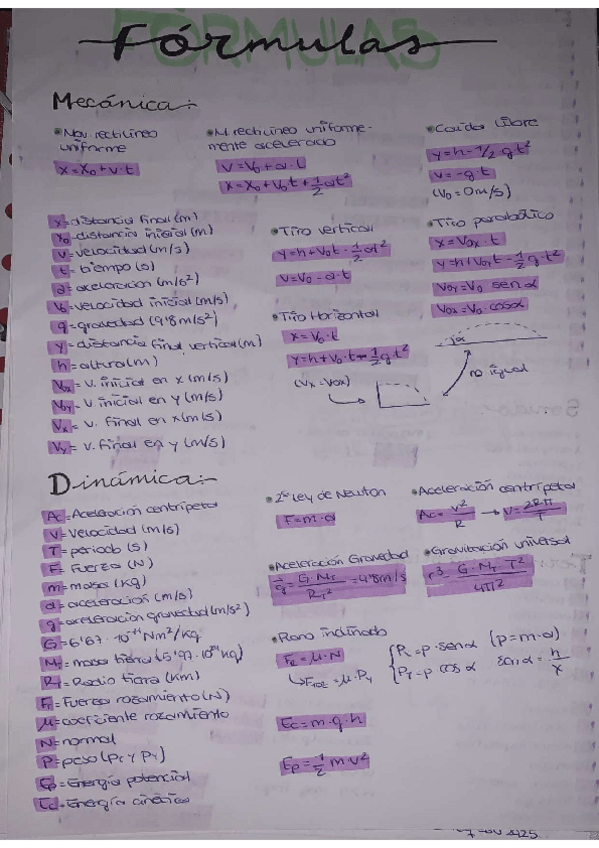 Fórmulas
Mecánica:-
• Mov rectilíneo
uniforme
x = x₀ + v·t
• M rectilíneo uniforme-
mente acelerado
v = v₀ + a·t
x = x₀ + v₀t + 1/2 at²
• Caída libre
y = h - 1/2 gt²
v = -g·t
(v₀ = 0m/s)
x = distancia final (m)
x₀ = distancia inicial (m)
v = velocidad (m/s)
t = tiempo (s)
a = aceleración (m/s²)
v₀ = velocidad inicial (m/s)
g = gravedad (9'8 m/s²)
y = distancia final vertical (m)
h = altura (m)
v₀x = v. inicial en x (m/s)
v₀y = v. inicial en y (m/s)
vx = v. final en x (m/s)
vy = v. final en y (m/s)
• Tiro vertical
y = h + v₀t - 1/2 at²
v = v₀ - a·t
• Tiro Horizontal
x = v₀·t
y = h + v₀·t - 1/2 g t²
(vx = v₀x)
• Tiro parabólico
x = v₀x·t
y = h + v₀yt - 1/2 g·t²
v₀y = v₀ sen α
v₀x = v₀·cos α
α
no igual
Dinámica:-
Ac = Aceleración centrípeta
v = velocidad (m/s)
T = periodo (s)
F = Fuerza (N)
m = masa (kg)
a = aceleración (m/s)
g = aceleración gravedad (m/s²)
G = 6'67·10⁻¹¹ Nm²/kg
MT = masa tierra (5'97·10²⁴ kg)
RT = Radio tierra (km)
Fr = Fuerza rozamiento (N)
μ = coeficiente rozamiento
N = normal
P = peso (Px y Py)
Ep = Energía potencial
Ec = Energía cinética
• 2ª Ley de Newton
F = m·a
• Aceleración centrípeta
Ac = v²/R → v = 2Rπ/T
• Aceleración Gravedad
g = G·MT/RT² = 9'8m/s
• Gravitación universal
r³ = G·MT·T²/4π²
• Plano inclinado
Fr = μ·N
↳ Froz = μ·Py
Px = p·sen α (p = m·a)
Py = p cos α sen α = h/x
Ec = m·g·h
Ep = 1/2 m v²